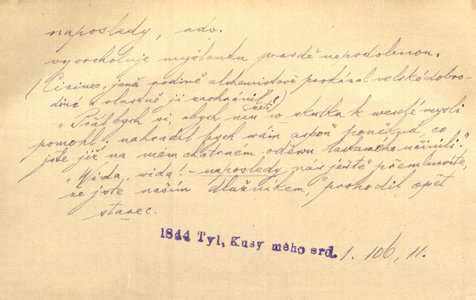 naposledy, adv.
vyvrcholuje myšlenku pravdě nepodobnou.
(Cizinec, jenž rodině alchemistově prokázal veliké dobro-
diní a vlastně ji zachránil, řekl:)
"Přál bych si, abych mu v skutku k veselé mysli
pomohl; nahradil bych vám aspoň poněkud, co
jste již na mém chatrném oděvu učinili.
"Vida, vida! – naposledy nás ještě přemluvíte,
že jste naším dlužníkem," prohodil opět
starec.
1844 Tyl, Kusy mého srd. 1. 106, 11.